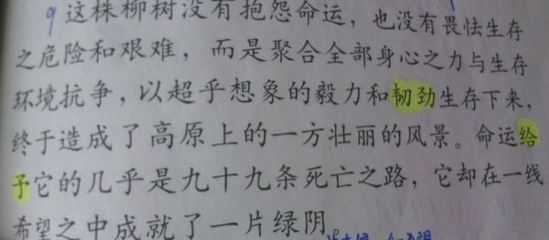 9 这株柳树没有抱怨命运，也没有畏怯生存
之危险和艰难，而是聚合全部身心之力与生存
环境抗争，以超乎想象的毅力和韧劲生存下来，
终于造成了高原上的一方壮丽的风景。命运给
予它的几乎是九十九条死亡之路，它却在一线
希望之中成就了一片绿阴。